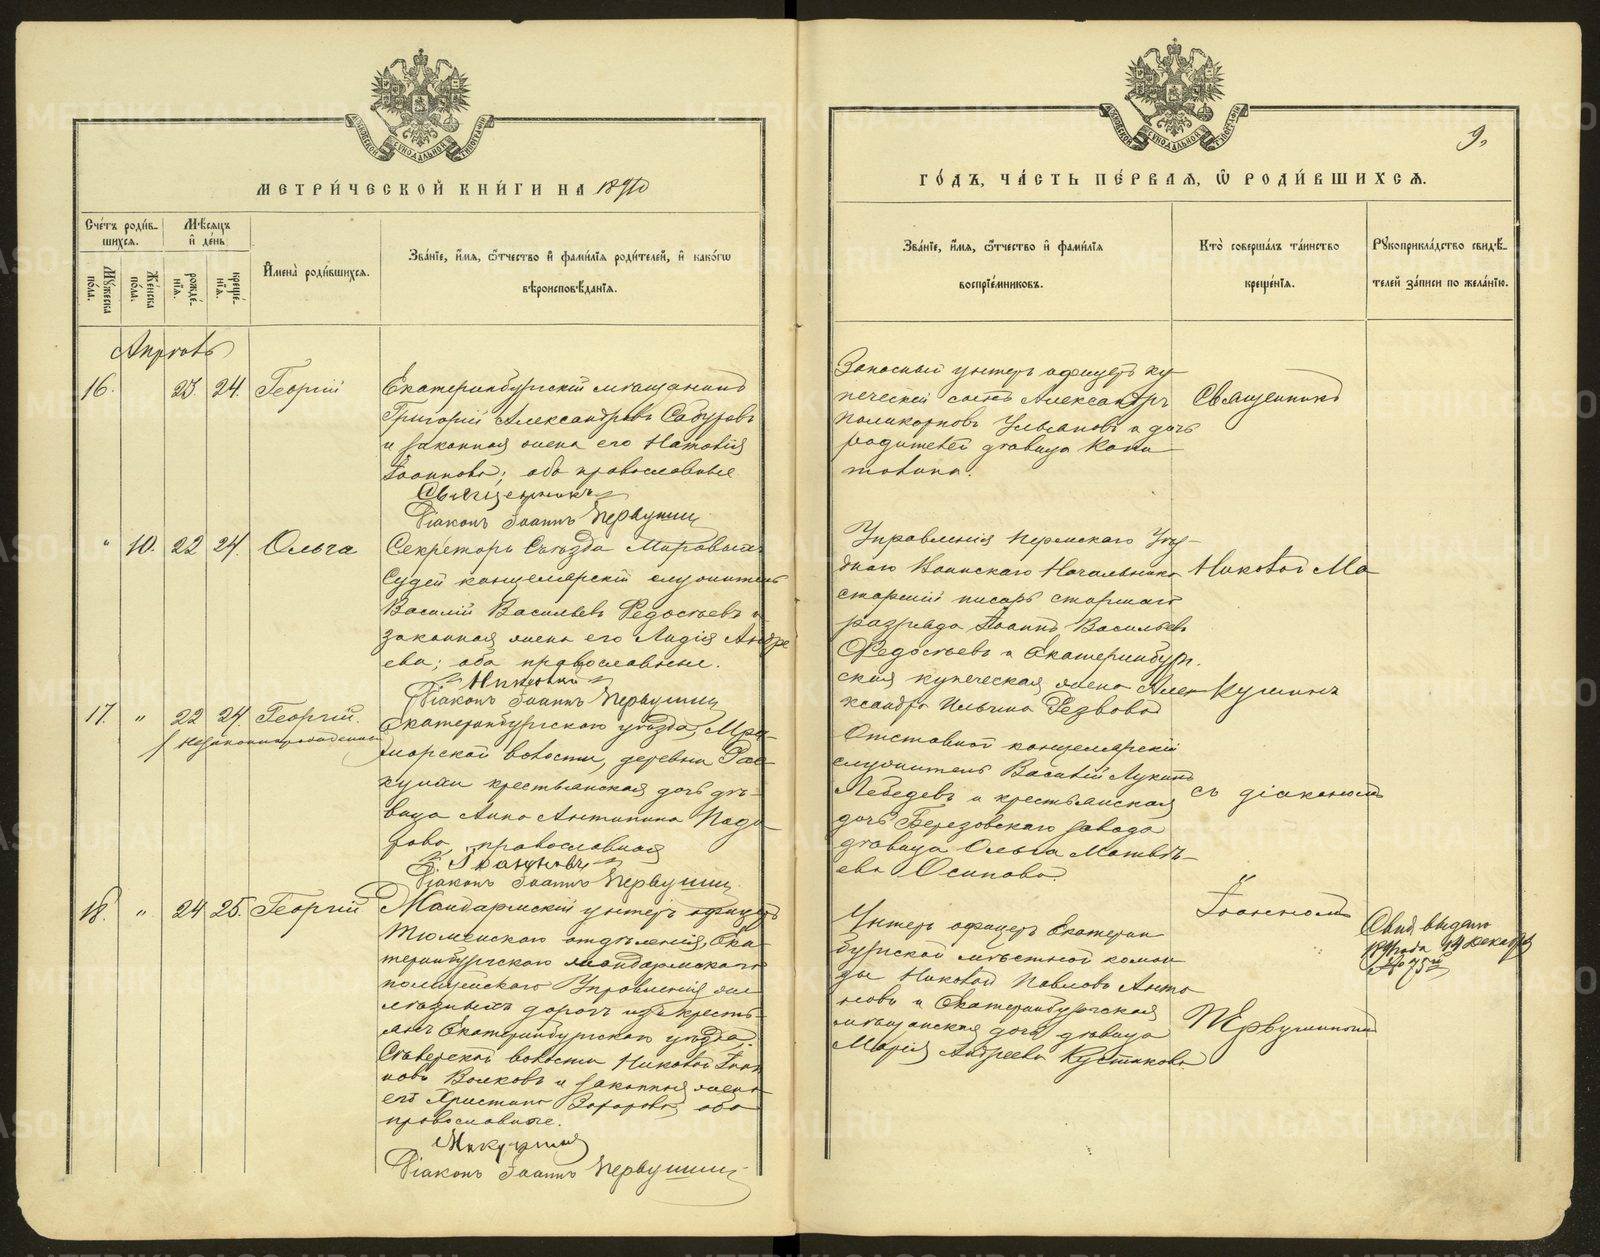 МЕТРИ́ЧЕСКОЙ КНИ́ГИ НА 1890
Сче́тъ роди́в-
шихся.
Мѣ́сяцъ
и́ де́нь
Му́жеска
по́ла.
Же́нска
по́ла.
рожде́-
нїя.
креще́-
нїя.
И҆мена̀ роди́вшихся.
Зва́нїе, и҆́мя, ѻ҆́тчество и҆ фами́лїя роди́телей, и҆ како́гѡ
вѣроисповѣ́данїя.
Апрѣль
16. 23. 24. Георгій
Екатеринбургскій мѣщанинъ
Григорій Александровъ Сабуровъ
и законная жена его Наталія
Іоаннова; оба православные
Священникъ
Діаконъ Іоаннъ Первушинъ
" 10. 22 24. Ольга
Секретарь Съѣзда Мировыхъ
Судей канцелярскій служитель
Василій Васильевъ Федосѣевъ и
законная жена его Лидія Андре
ева; оба православные.
Николай
Діаконъ Іоаннъ Первушинъ
17. " 22 24. Георгій.
незаконнорожденный
Екатеринбургскаго уѣзда, Мра-
морской волости, деревни
крестьянская дочь дѣ-
вица Анна Антипина
православная
Іоанновъ
Діаконъ Іоаннъ Первушинъ
18. " 24 25. Георгій
Жандармскій унтеръ офицеръ
Тюменскаго отдѣленія, Ека-
теринбургскаго жандармскаго
полицейскаго Управленія же-
лѣзныхъ дорогъ изъ кресть-
янъ Екатеринбургскаго уѣзда,
волости Николай Іоан
новъ Волковъ и законная жена
его Христина Захарова, оба
православные.
Макушина
Діаконъ Іоаннъ Первушинъ
9.
ГО́ДЪ, ЧА́СТЬ ПЕ́РВАЯ, Ѡ҆ РОДИ́ВШИХСЯ.
Зва́нїе, и҆́мя, ѻ҆́тчество и҆ фами́лїя
воспрїе́мниковъ.
Кто̀ соверша́лъ та́инство
креще́нїя.
Рꙋкоприкла́дство свидѣ́-
телей за́писи по жела́нїю.
Запасный унтеръ офицеръ ку-
печескій сынъ Александръ
Поликарповъ Ульяновъ и дочь
родителей дѣвица Капи
толина.
Священникъ
Управленія Пермскаго Уѣз-
днаго Воинскаго Начальника
старшій писарь старшаго
разряда Іоаннъ Васильевъ
Федосѣевъ и Екатеринбург-
ская купеческая жена Алек
ксандра Ильина Рѣзвова
Николай Ма
кушинъ
Отставной канцелярскій
служитель Василій Лукинъ
Лебедевъ и крестьянская
дочь Березовскаго завода
дѣвица Ольга Матвѣ-
ева Осипова.
съ діакономъ
Унтеръ офицеръ Екатерин
бургской мѣстной коман
ды Николай Павловъ Анто
новъ и Екатеринбургская
мѣщанская дочь дѣвица
Марія Андреева
Іоанномъ
Первушинымъ
Свид. выдано
декабря
№ 75